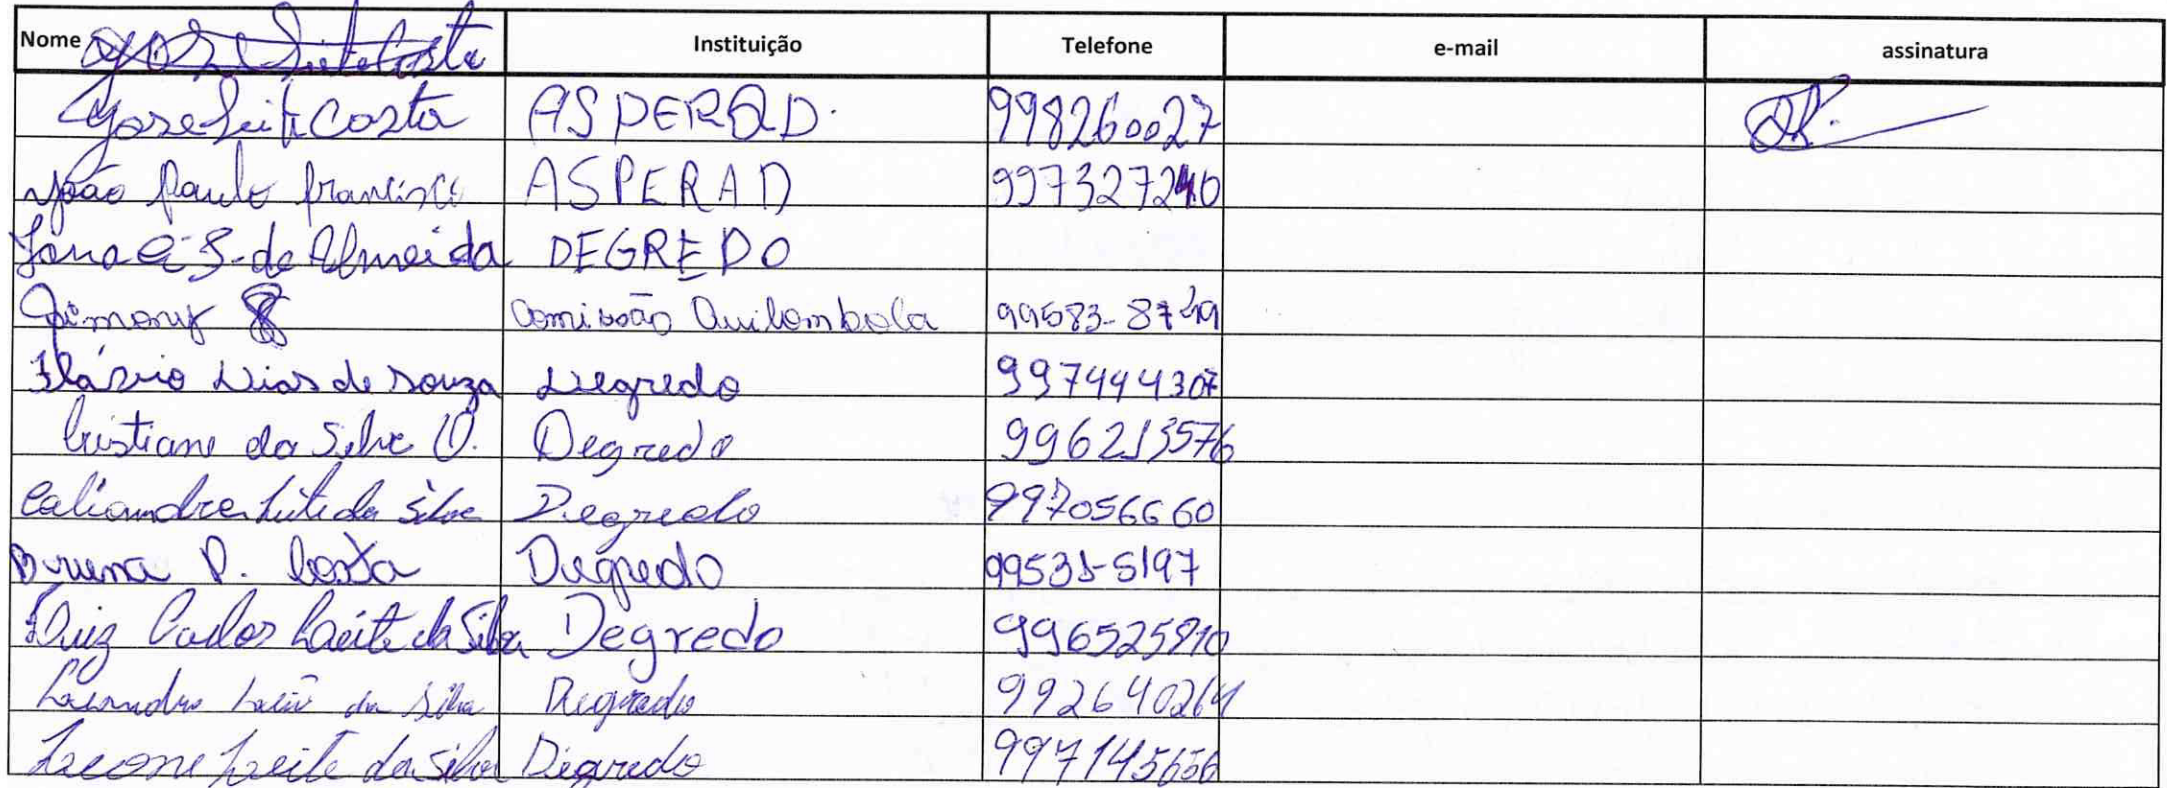 Nome Instituição Telefone e-mail assinatura
Jose Leite Costa
Jose Leite Costa ASPERQD. 998260027
João Paulo francisco ASPERAD 997327240
de Almeida DEGREDO
Comissão Quilombola 99583-8749
Flávio Dias de Souza Degredo 997444307
Cristiane da Silva O. Degredo 996213576
Caliandra Leite da Silva Degredo 997056660
Bruna P. Costa Degredo 99531-5197
Luiz Carlos Leite da Silva Degredo 996525910
Leite da Silva Degredo 992640264
Leite da Silva Degredo 997145656